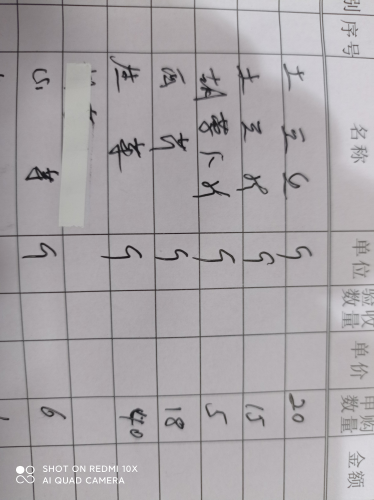 别 序号 名称 单位 验收数量 单价 申购数量 金额
土豆 斤 20
土豆片 斤 15
胡萝卜片 斤 5
西芹 斤 18
生姜 斤 40
斤 6
SHOT ON REDMI 10X
AI QUAD CAMERA